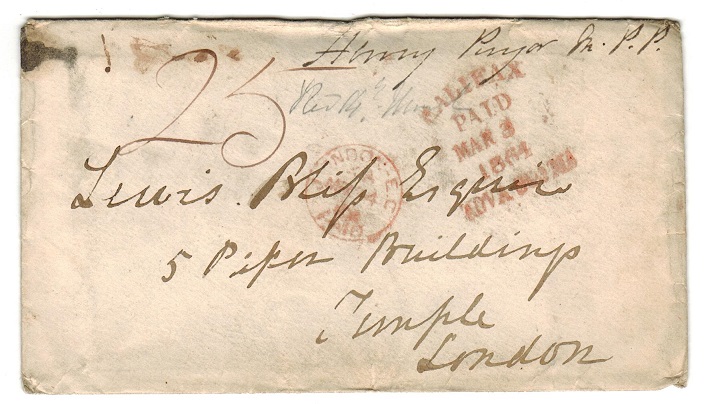 Henry Pryor M.P.P.
25
HALIFAX
PAID
MAR 3
1864
NOVA SCOTIA
LONDON E.C
PAID
Lewis Bliss Esquire
5 Paper Buildings
Temple
London